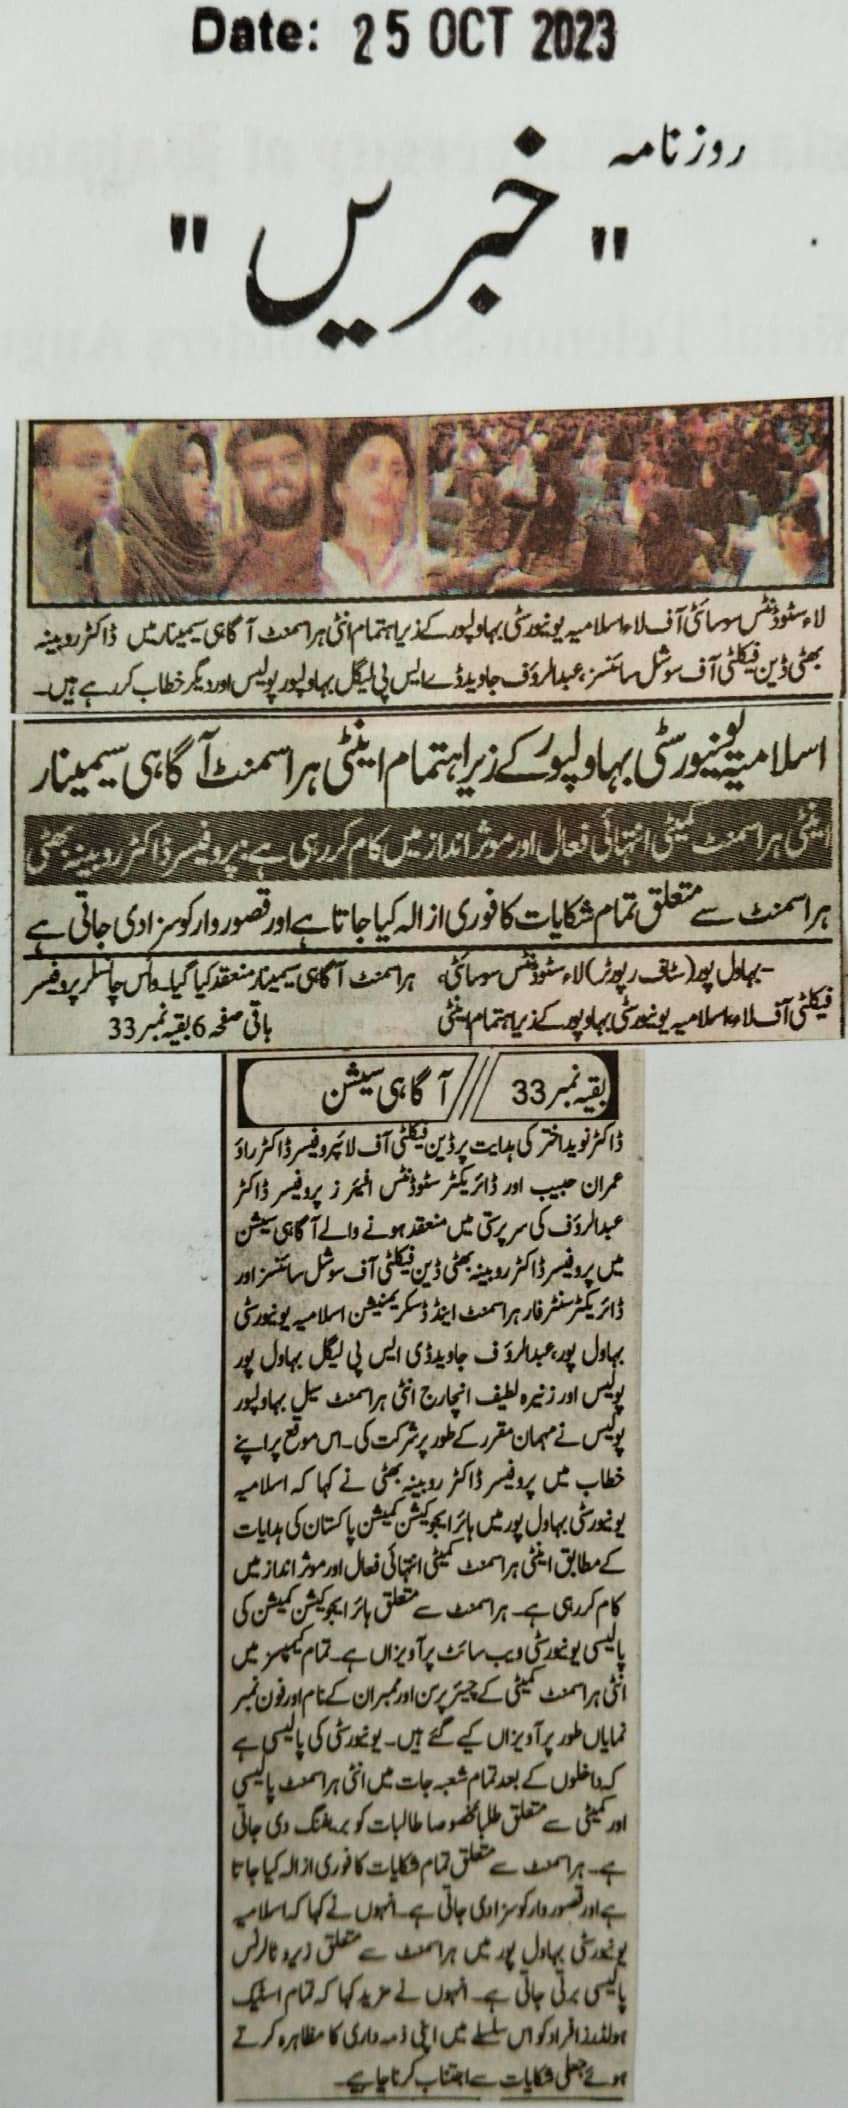 Date: 25 OCT 2023
روزنامہ
"خبریں"
لاء سٹوڈنٹس سوسائٹی آف لاء اسلامیہ یونیورسٹی بہاولپور کے زیر اہتمام انٹی ہراسمنٹ آگاہی سیمینار میں ڈاکٹر روبینہ
بھٹی ڈین فیکلٹی آف سوشل سائنسز، عبدالرؤف جاوید ڈے ایس پی لیگل بہاولپور پولیس اور دیگر خطاب کر رہے ہیں۔
اسلامیہ یونیورسٹی بہاولپور کے زیر اہتمام اینٹی ہراسمنٹ آگاہی سیمینار
اینٹی ہراسمنٹ کمیٹی انتہائی فعال اور موثر انداز میں کام کر رہی ہے: پروفیسر ڈاکٹر روبینہ بھٹی
ہراسمنٹ سے متعلق تمام شکایات کا فوری ازالہ کیا جاتا ہے اور قصور وار کو سزا دی جاتی ہے
بہاول پور (سٹاف رپورٹر) لاء سٹوڈنٹس سوسائٹی،
فیکلٹی آف لاء اسلامیہ یونیورسٹی بہاولپور کے زیر اہتمام اینٹی
ہراسمنٹ آگاہی سیمینار منعقد کیا گیا۔ وائس چانسلر پروفیسر
باقی صفحہ 6 بقیہ نمبر 33
بقیہ نمبر 33 /// آگاہی سیشن
ڈاکٹر نوید اختر کی ہدایت پر ڈین فیکلٹی آف لا پروفیسر ڈاکٹر راؤ
عمران حبیب اور ڈائریکٹر سٹوڈنٹس افیئرز پروفیسر ڈاکٹر
عبدالرؤف کی سرپرستی میں منعقد ہونے والے آگاہی سیشن
میں پروفیسر ڈاکٹر روبینہ بھٹی ڈین فیکلٹی آف سوشل سائنسز اور
ڈائریکٹر سنٹر فار ہراسمنٹ اینڈ ڈسکریمنیشن اسلامیہ یونیورسٹی
بہاول پور، عبدالرؤف جاوید ڈی ایس پی لیگل بہاول پور
پولیس اور زنیرہ لطیف انچارج انٹی ہراسمنٹ سیل بہاولپور
پولیس نے مہمان مقرر کے طور پر شرکت کی۔ اس موقع پر اپنے
خطاب میں پروفیسر ڈاکٹر روبینہ بھٹی نے کہا کہ اسلامیہ
یونیورسٹی بہاول پور میں ہائر ایجوکیشن کمیشن پاکستان کی ہدایات
کے مطابق اینٹی ہراسمنٹ کمیٹی انتہائی فعال اور موثر انداز میں
کام کر رہی ہے۔ ہراسمنٹ سے متعلق ہائر ایجوکیشن کمیشن کی
پالیسی یونیورسٹی ویب سائٹ پر آویزاں ہے۔ تمام کیمپسز میں
انٹی ہراسمنٹ کمیٹی کے چیئر پرسن اور ممبران کے نام اور فون نمبر
نمایاں طور پر آویزاں کیے گئے ہیں۔ یونیورسٹی کی پالیسی ہے
کہ داخلوں کے بعد تمام شعبہ جات میں انٹی ہراسمنٹ پالیسی
اور کمیٹی سے متعلق طلبا مخصوصا طالبات کو بریفنگ دی جاتی
ہے۔ ہراسمنٹ سے متعلق تمام شکایات کا فوری ازالہ کیا جاتا
ہے اور قصور وار کو سزا دی جاتی ہے۔ انہوں نے کہا کہ اسلامیہ
یونیورسٹی بہاول پور میں ہراسمنٹ سے متعلق زیرو ٹالرنس
پالیسی برتی جاتی ہے۔ انہوں نے مزید کہا کہ تمام اسٹیک
ہولڈرز افراد کو اس سلسلے میں اپنی ذمہ داری کا مظاہرہ کرتے
ہوئے جعلی شکایات سے اجتناب کرنا چاہیے۔